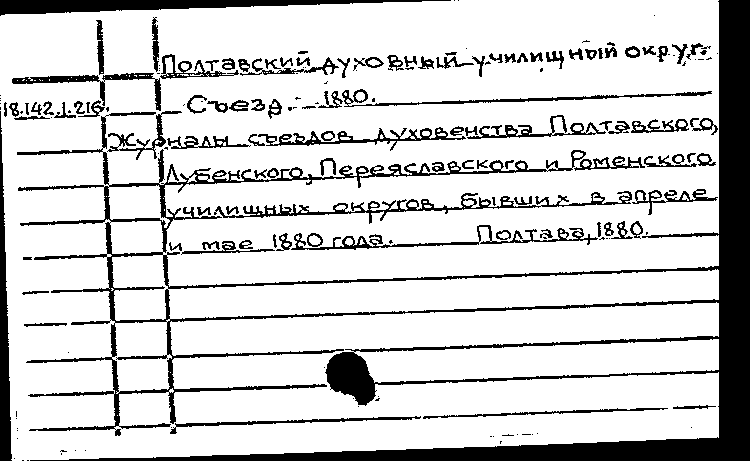 Полтавский духовный училищный округ.
18.142.1.216. Съезд. 1880.
Журналы съездов духовенства Полтавского,
Лубенского, Переяславского и Роменского
училищных округов, бывших в апреле
и мае 1880 года. Полтава, 1880.